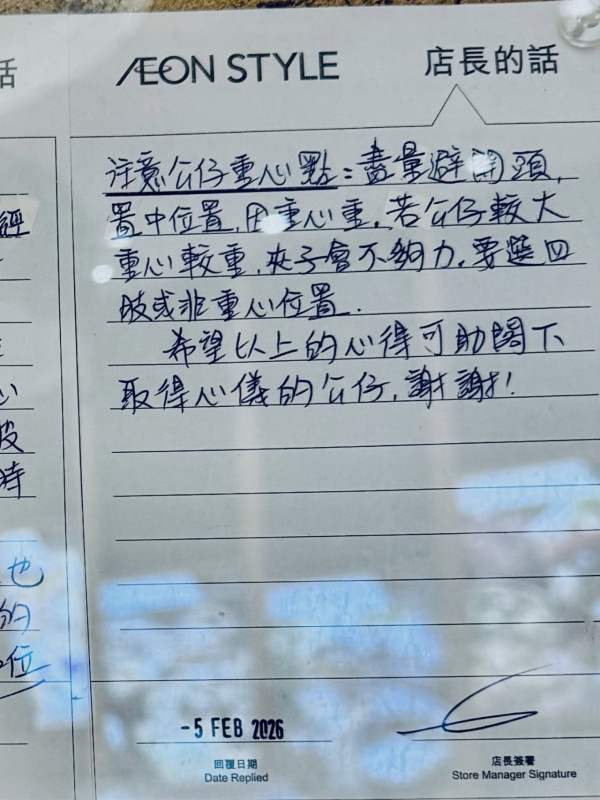 話
ÆON STYLE 店長的話
注意公仔重心點：盡量避開頭，
置中位置，因重心重，若公仔較大
重心較重，夾子會不夠力，要選四
肢或非重心位置．
希望以上的心得可助閣下
取得心儀的公仔，謝謝！
經
心
皮
時
也
的
位
-5 FEB 2026
回覆日期
Date Replied
店長簽署
Store Manager Signature